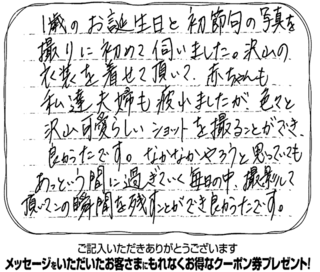 1歳のお誕生日と初節句の写真を
撮りに初めて伺いました。沢山の
衣装を着せて頂いて、赤ちゃんも
私達夫婦も疲れましたが色々と
沢山可愛らしいショットを撮ることができ、
良かったです。なかなかやろうと思っていても
あっという間に過ぎていく毎日の中、撮影して
頂いてこの瞬間を残すことができ良かったです。
ご記入いただきありがとうございます
メッセージをいただいたお客さまにもれなくお得なクーポン券プレゼント!